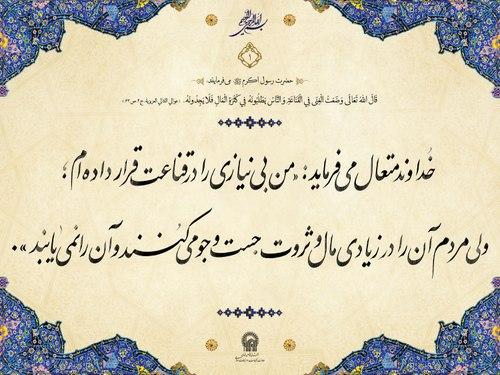 بسم الله الرحمن الرحیم
۱
حضرت رسول اکرم ﷺ می‌فرمایند:
قَالَ اللهُ تَعَالَى وَضَعْتُ الْغِنَى فِي الْقَنَاعَةِ وَ النَّاسُ يَطْلُبُونَهُ فِي كَثْرَةِ الْمَالِ فَلَا يَجِدُونَهُ.
خُداوند متعال می فرماید: «من بی نیازی را در قناعت قرار داده ام؛
ولی مردم آن را در زیادی مال و ثروت جست و جو می کُنند و آن را نمی یابند».